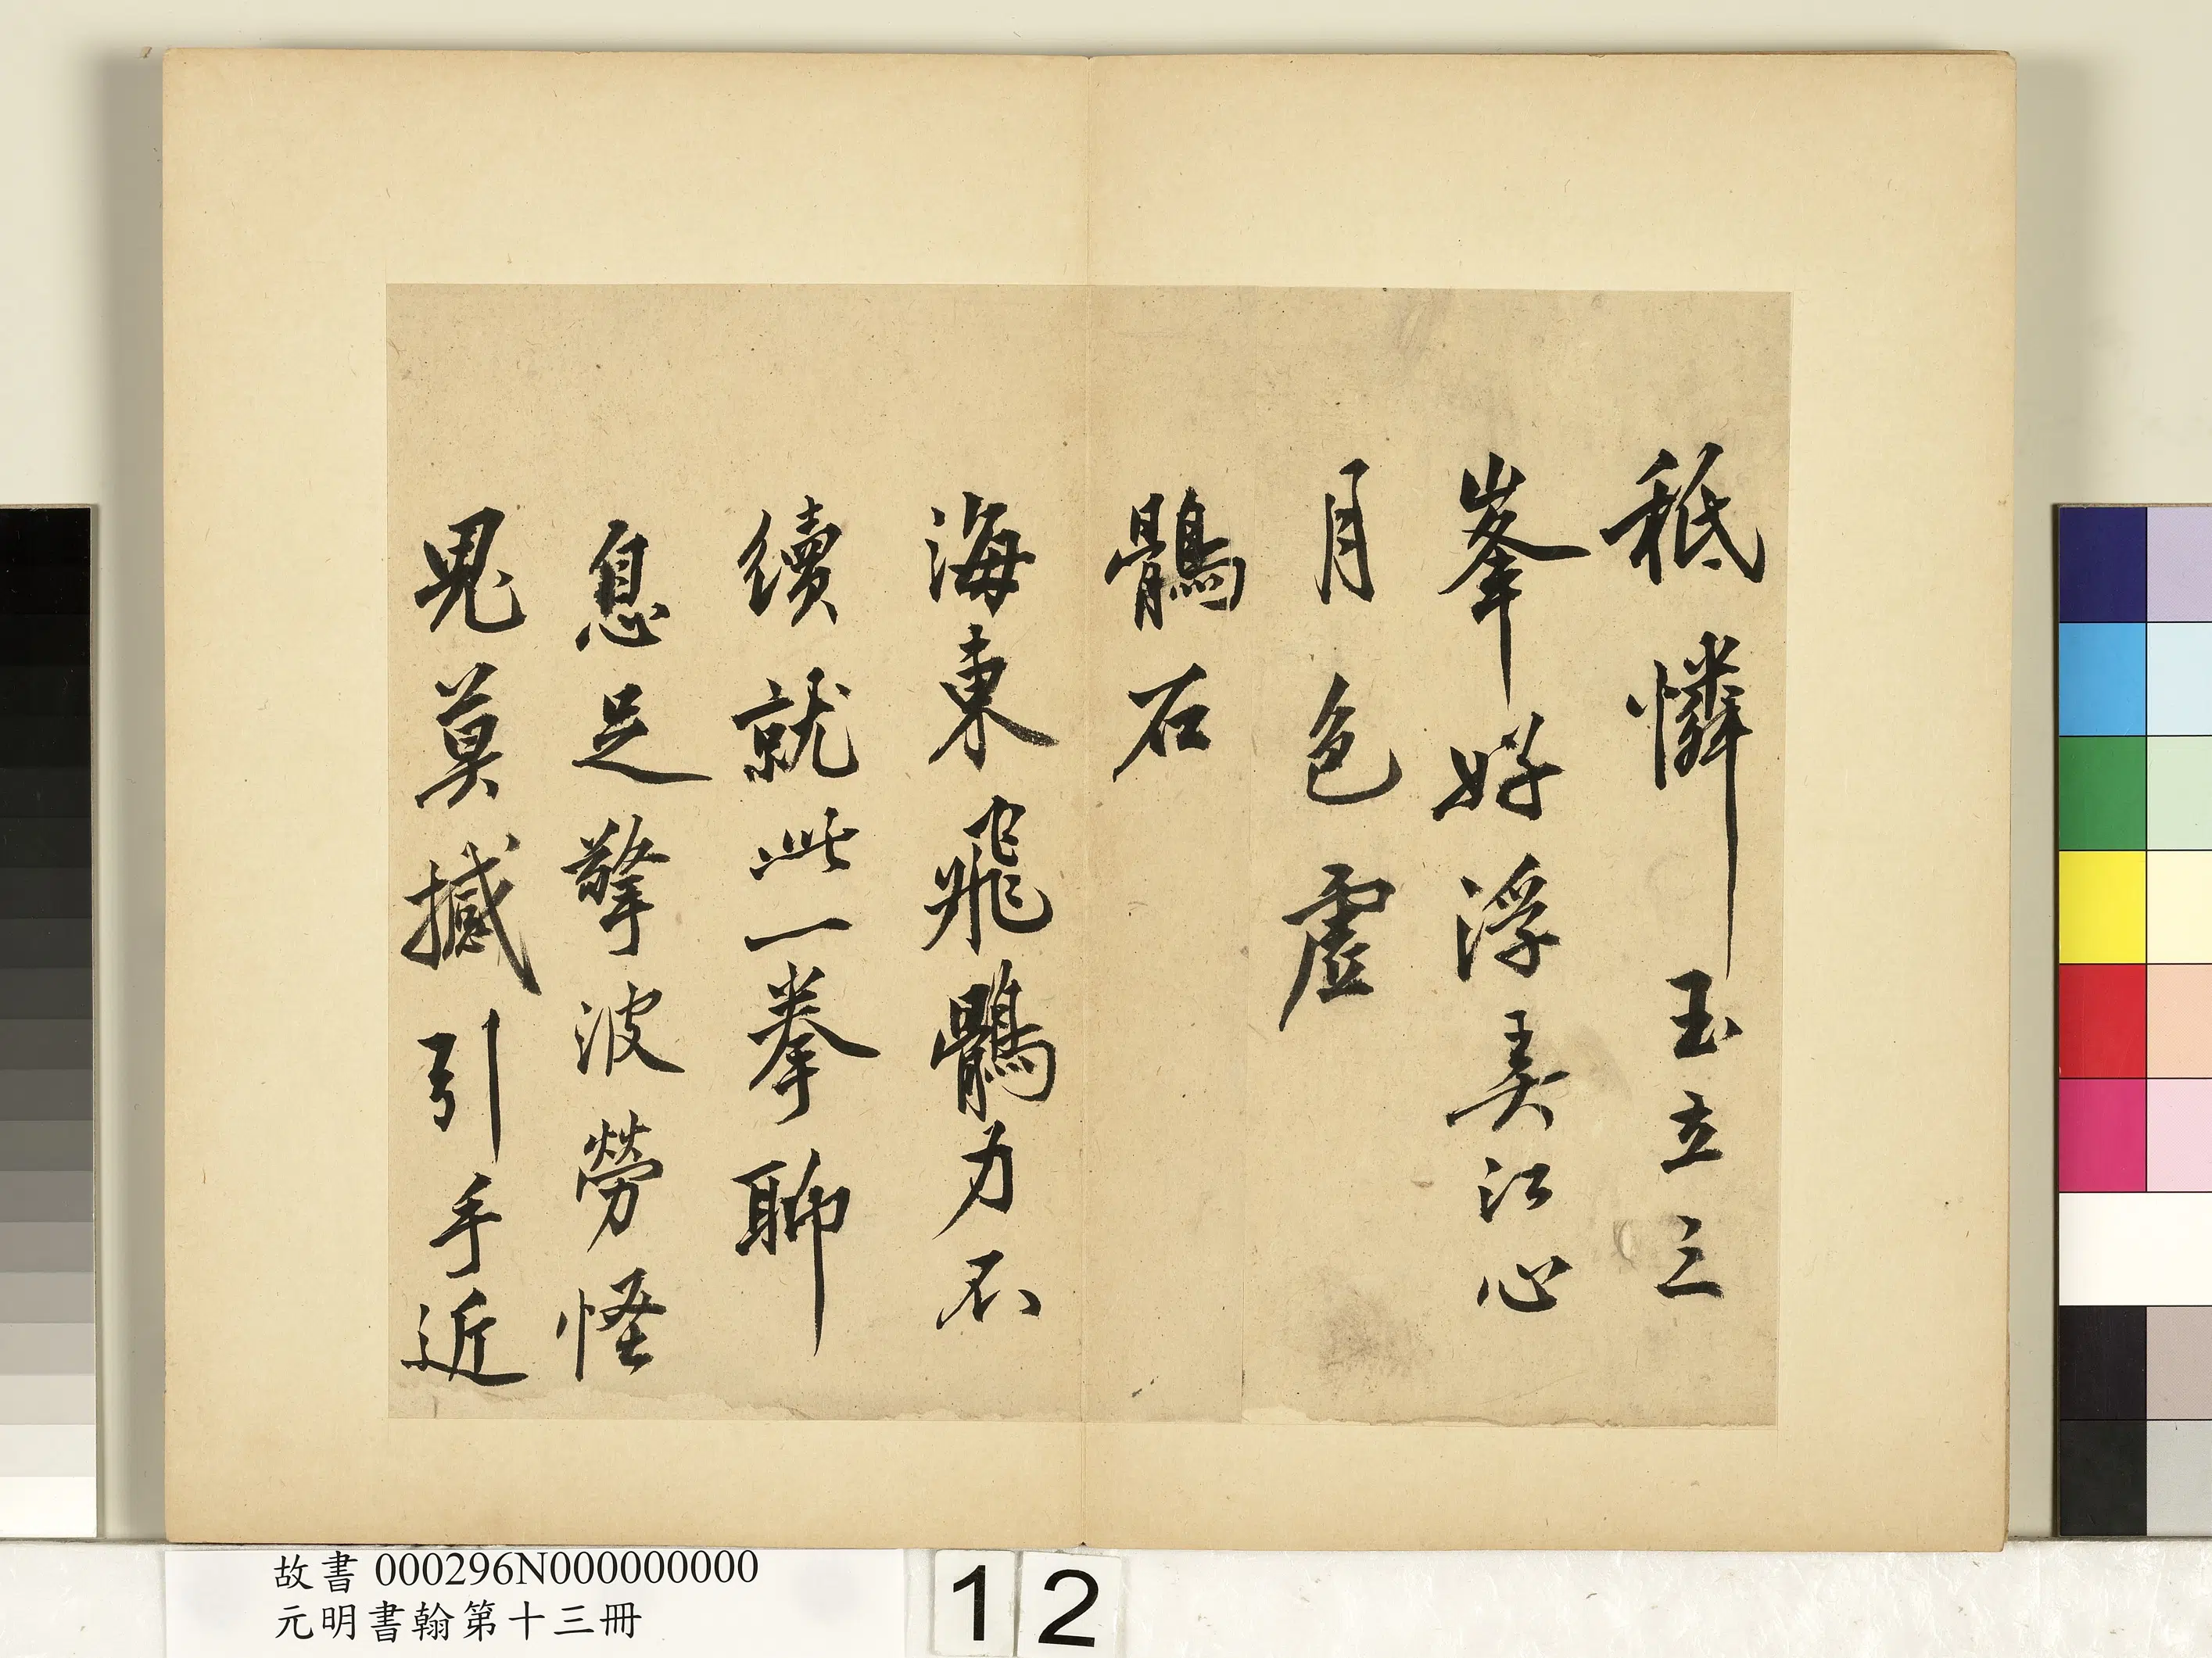 秪憐玉立三
峯好浮弄江心
月色虛
鶻石
海東飛鶻力不
續就此一拳聊
息足擎波勞怪
鬼莫撼引手近
故書 000296N000000000
元明書翰第十三冊
12